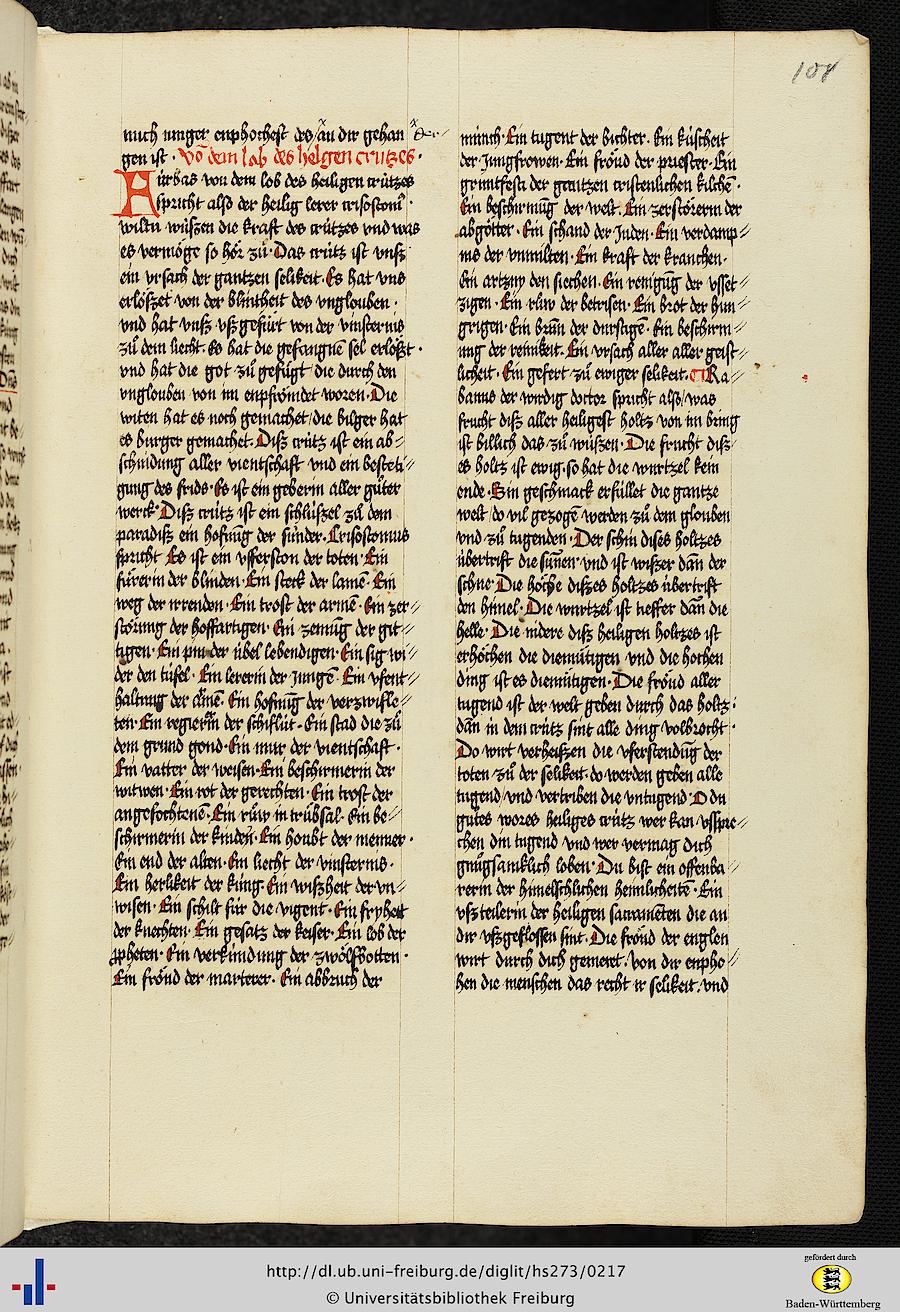 101
mich ninger enphochest des an dir gehan der
gen ist · Võ dem lob des heligen crützes ·
Fürbas von dem lob des heiligen crützes
spricht also der heilig lerer crisostomꝰ ·
wiltu wüssen die kraft des crützes vnd was
es vermöge so hör zů · Das crütz ist vnß
ein vrsach der gantzen selikeit · Es hat vns
erlößet von der blintheit des vnglouben ·
vnd hat vnß vß gefürt von der vinsternis
zů dem liecht · Es hat die gefangnē sel erlößt ·
vnd hat die got zů gefügt die durch den
vnglouben von im enpfrömdet woren · Die
witen hat es noch gemachet / die bilger hat
es burger gemachet · Diß crütz ist ein ab⸗
schnidung aller vientschaft vnd ein besteti⸗
gung des frids · Es ist ein geberin aller güter
werck · Diß crütz ist ein schlüßel zů dem
paradiß ein hofnūg der sünder · Crisostomus
spricht Es ist ein vfferston der toten · Ein
fürerin der blinden · Ein steck der lamē · Ein
weg der irrenden · Ein trost der armē · Ein zer⸗
störung der hoffartigen · Ein zemūg der git⸗
tigen · Ein pin der übel lebendigen · Ein sig wi⸗
der den tüfel · Ein lererin der Jungē · Ein vfent⸗
haltung der armē · Ein hofnūg der verzwifle⸗
ten · Ein regiererin der schiflüt · Ein stad die zů
dem grund gond · Ein mur der vientschaft ·
Ein vatter der weisen · Ein beschirmerin der
witwen · Ein rot der gerechten · Ein trost der
angefochtenē · Ein růw in trübsal · Ein be⸗
schirmerin der kinden · Ein houbt der menner ·
Ein end der alten · Ein liecht der vinsternis ·
Ein herlikeit der küng · Ein wißheit der vn⸗
wisen · Ein schilt für die vigent · Ein fryheit
der knechten · Ein gesatz der keiser · Ein lob der
ꝓpheten · Ein verkündung der zwölfbotten ·
Ein fröud der marterer · Ein abbruch der
münch · Ein tugent der bichter · Ein küscheit
der Jungfrowen · Ein fröud der priester · Ein
gruntfesti der gantzen cristenlichen kilchē ·
Ein beschirmūg der welt · Ein zerstörerin der
abgötter · Ein schand der Juden · Ein verdamp⸗
nis der vnmilten · Ein kraft der krancken ·
Ein artzny den siechen · Ein reinigūg der vsset⸗
zigen · Ein růw der betrisen · Ein brot der hun⸗
grigen · Ein brūn der durstigē · Ein beschirm⸗
ung der reinikeit · Ein vrsach aller aller geist⸗
licheit · Ein gefert zů ewiger selikeit · ¶ Ra⸗
banus der wirdig doctor spricht also / was
frucht diß aller heiligest holtz von im bring
ist billich das zů wüßen · Die frucht diß
es holtz ist ewig · so hat die wurtzel kein
ende · Sin geschmack erfüllet die gantze
welt / do vil gezogē werden zů dem glouben
vnd zů tugenden · Der schin dises holtzes
übertrift die sunnē vnd ist wißer dān der
schne · Die höche dißes holtzes übertrift
den himel · Die wurtzel ist tieffer dan die
helle · Die nidere diß heiligen holtzes ist
erhöchen die diemütigen vnd die hochen
ding ist es diemütigen · Die fröud aller
tugend ist der welt geben durch das holtz ·
dān in dem crütz sint alle ding volbrocht ·
Do wirt verheißen die vferstendūg der
toten zů der selikeit · do werden geben alle
tugend / vnd vertriben die vntugend · O du
gůtes wores heiliges crütz wer kan vsspre⸗
chen din tugend vnd wer vermag dich
gnůgsamklich loben · Du bist ein offenba⸗
rerin der himelschlichen heimlicheitē · Ein
vßteilerin der heiligen sacramēten die an
dir vßgeflossen sint · Die fröud der englen
wirt durch dich gemeret · von dir enpho⸗
hen die menschen das recht ir selikeit · vnd
http://dl.ub.uni-freiburg.de/diglit/hs273/0217
© Universitätsbibliothek Freiburg
gefördert durch
Baden-Württemberg